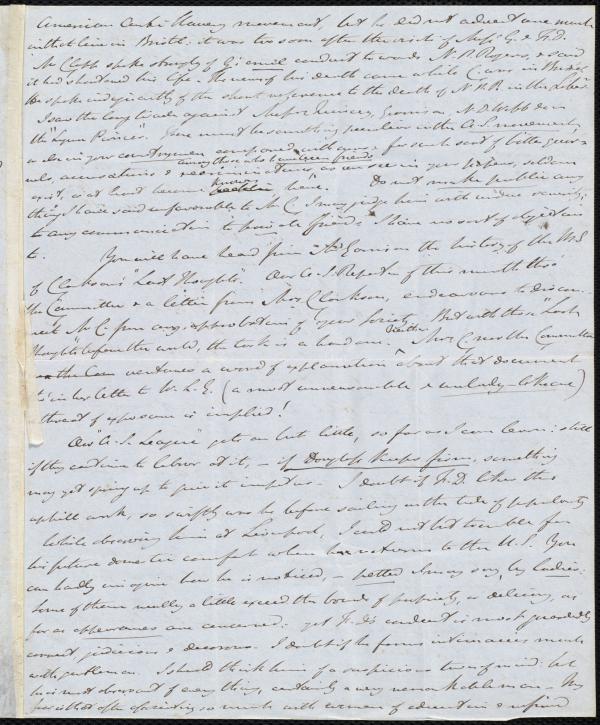 American Anti-Slavery movement, but he did not advert one much
with at line in Bristol: it was too soon after the visit of Messrs G. & F.D.
Mr Clapp spoke strongly of G's cruel conduct towards N. P. Rogers, & said
it had shortened his life. The news of his death came while C. was in Bristol
He spoke indignantly of the short reference to the death of N.P.R. in the Liber
I saw the long tirade against Messrs Quincy, Garrison, R. D. Webb &c in
the "Lynn Pioneer". There must be something peculiar in the A. S. movement,
or else in your countrymen compared with ours, for such sort of bitter quarrels,
accusations & recriminations among those who have been friends, as we see in your papers, seldom
exist, or at least become known here. Do not make public any
thing I have said unfavorable to Mr C. I may judge him with undue severity:
to any communication to private friends I have no sort of objection
You will have heard from Mr Garrison the history of the M.S.
of Clarkson's "Last Thoughts". Our A. S. Reporter of this month thro'
the Committee & a letter from Mrs Clarkson, endeavours to discon-
nect Mr C. from any approbation of your Society. But with these "Last
Thoughts" before the world, the task is a hard one. Neither Mrs C. nor the Committee
ventures a word of explanation about that document
in her letter to W.L.G. (a most unreasonable & unlady-like one)
a threat of exposure is implied!
Our "A. S. League" gets on but little, so far as I can learn: still
if they continue to labour at it, – if Douglass keeps firm, something
may yet spring up to give it impetus – I doubt if F.D. likes this
uphill work, so swiftly was he before sailing with the tide of popularity
While observing him at Liverpool, I could not but tremble for
his future domestic comfort when he returns to the U.S. You
can hardly imagine how he is noticed, – petted I may say, by ladies.
Some of them really a little exceed the bounds of propriety, or delicacy, as
far as appearances are concerned: yet F.D's conduct is most guardedly
correct, judicious & decorous. I doubt if he forms intimacies much
with gentlemen. I should think him of a suspicious turn of mind: but
he is most observant of every thing, certainly a very remarkable man. My
fear is that after associating so much with women of education & refined